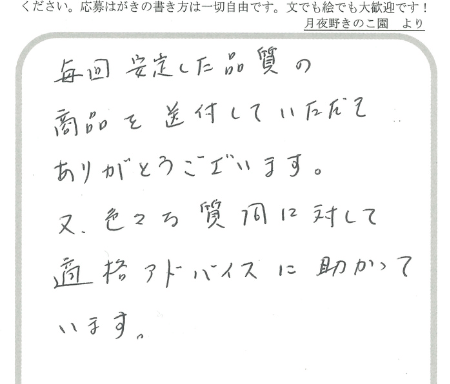 ください。応募はがきの書き方は一切自由です。文でも絵でも大歓迎です！
月夜野きのこ園　より
毎回 安定した品質の
商品を送付していただき
ありがとうございます。
又、色々な質問に対して
適格アドバイスに助かって
います。